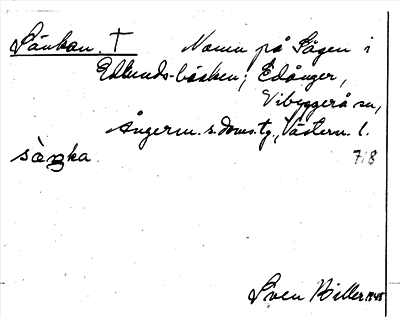 Sänkan. † Namn på Sågen i
Edlunds-bäcken; Edånger,
Vibyggerå sn,
Ångerm. s. doms. tg., Västern. l.
sàŋka 718
Sven Hiller 1945